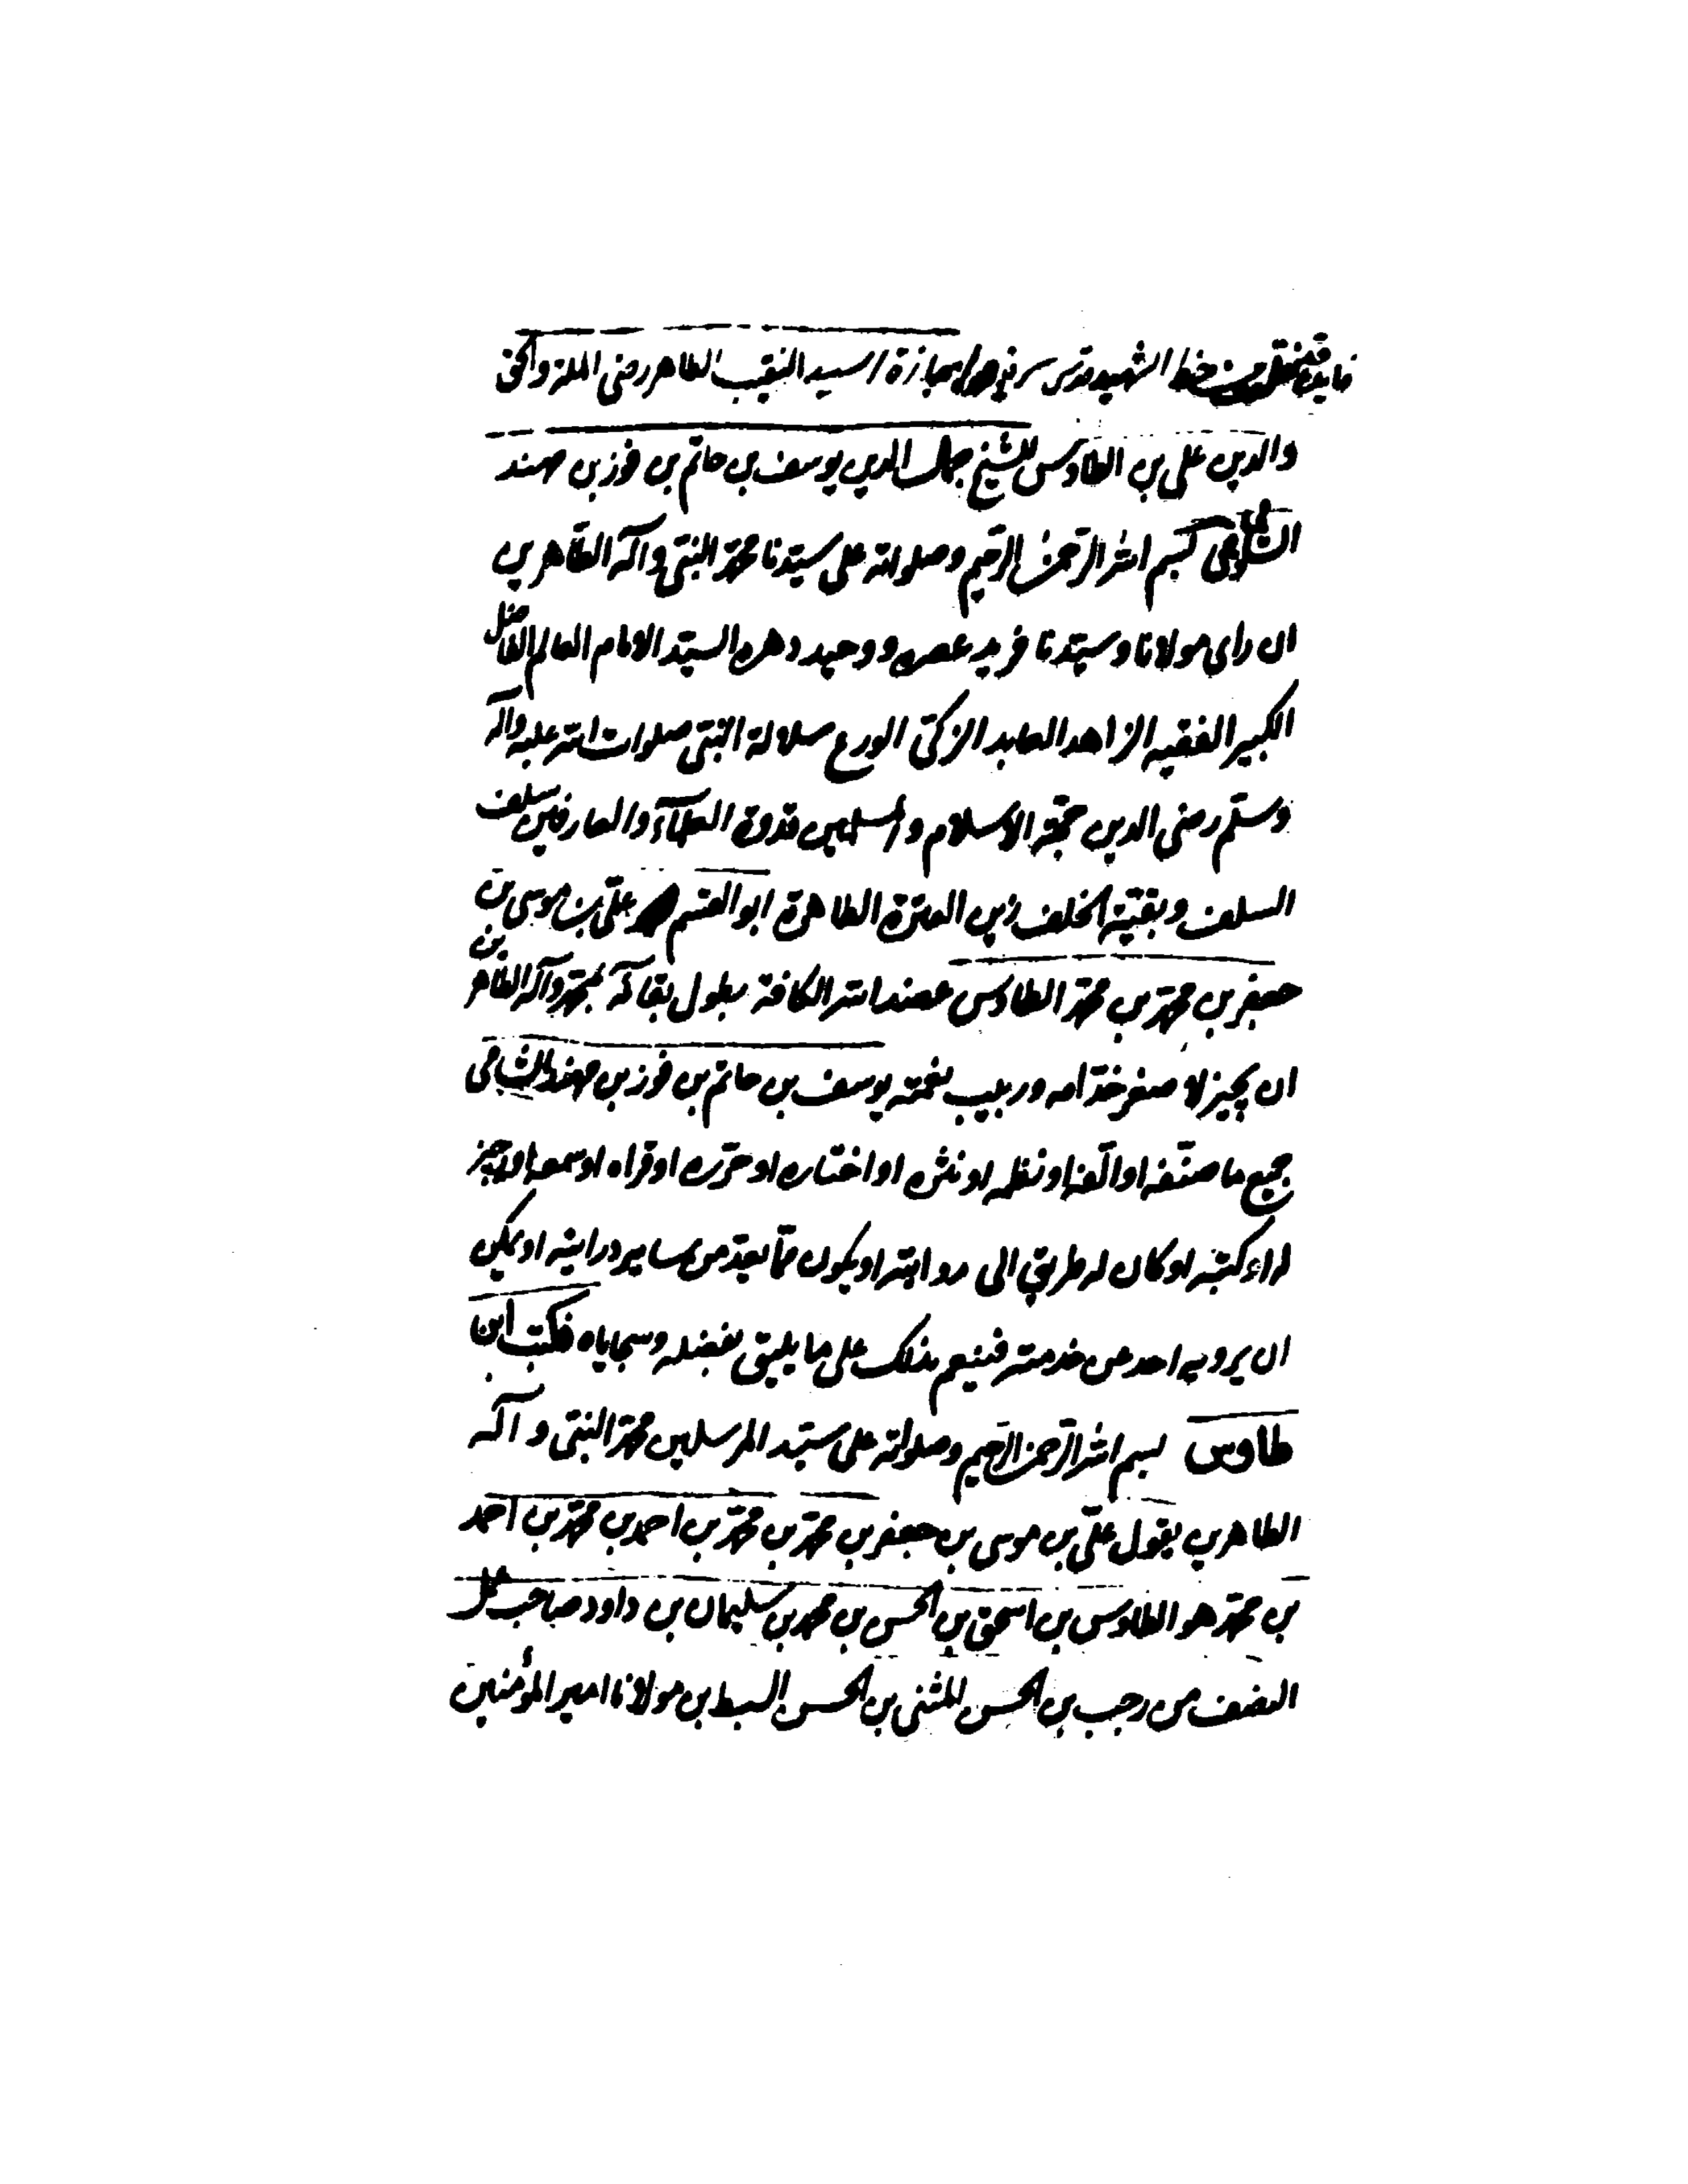 فايدة نقل من خط الشهيد قدس سره اجازة السيد النقيب الطاهر رضى الملة والحق
والدين على بن الطاوس للشيخ جمال الدين يوسف بن حاتم بن فوز بن مهند
الشامى بسم الله الرحمن الرحيم وصلواته على سيدنا محمد النبى وآله الطاهرين
ان راى مولانا وسيدنا فريد عصره ووحيد دهره السيد الامام العالم الفاضل
الكبير الفقيه الزاهد العابد الزكى الورع سلالة النبى صلوات الله عليه وآله
وسلم رضى الدين حجة الاسلام والمسلمين قدوة العلمآء والعارفين سلف
السلف وبقية الخلف زين العترة الطاهرة ابو القسم على بن موسى بن
جعفر بن محمد بن محمد الطاوس عضد الله الكافة بطول بقائه بمحمد وآله الطاهرين
ان يجيز لاصغر خدامه وربيب نعمته يوسف بن حاتم بن فوز بن مهند الشامى
جميع ما صنفه او الفه او نظمه او نثره او اختاره او حرره او قراه او سمعه او اجيز
له او كتبه او كان له طريق الى روايته او يكون مما يعد من ساير درايته او يمكن
ان يرويه احد عن خدمته فينعم بذلك على ما يليق بفضله وسجاياه فكتب ابن
طاوس بسم الله الرحمن الرحيم وصلواته على سيد المرسلين محمد النبى وآله
الطاهرين يقول على بن موسى بن جعفر بن محمد بن محمد بن احمد بن محمد بن احمد
بن محمد هو الطاوس بن اسحق بن الحسن بن محمد بن سليمان بن داود صاحب عمل
النصف من رجب بن الحسن المثنى بن الحسن السبط بن مولانا امير المؤمنين